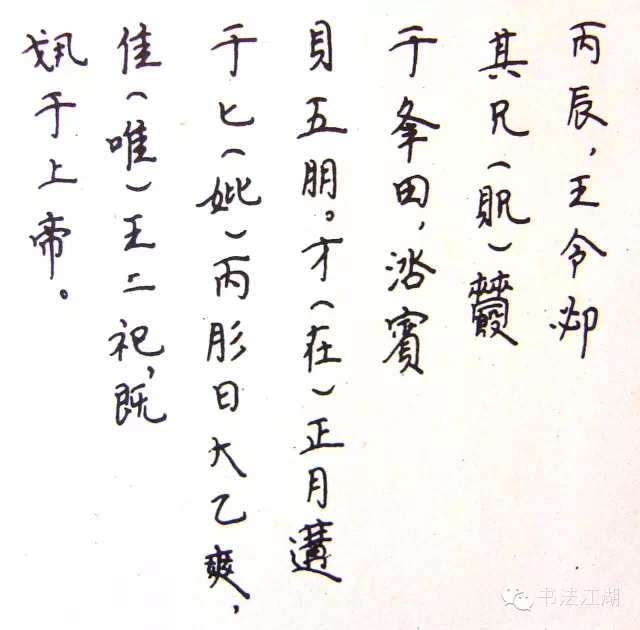 丙辰，王令𠨘
其兄（貺）
于夆田，渞賓
貝五朋。才（在）正月遘
于匕（妣）丙肜日大乙奭，
隹（唯）王二祀，既
𡖊于上帝。
书法江湖